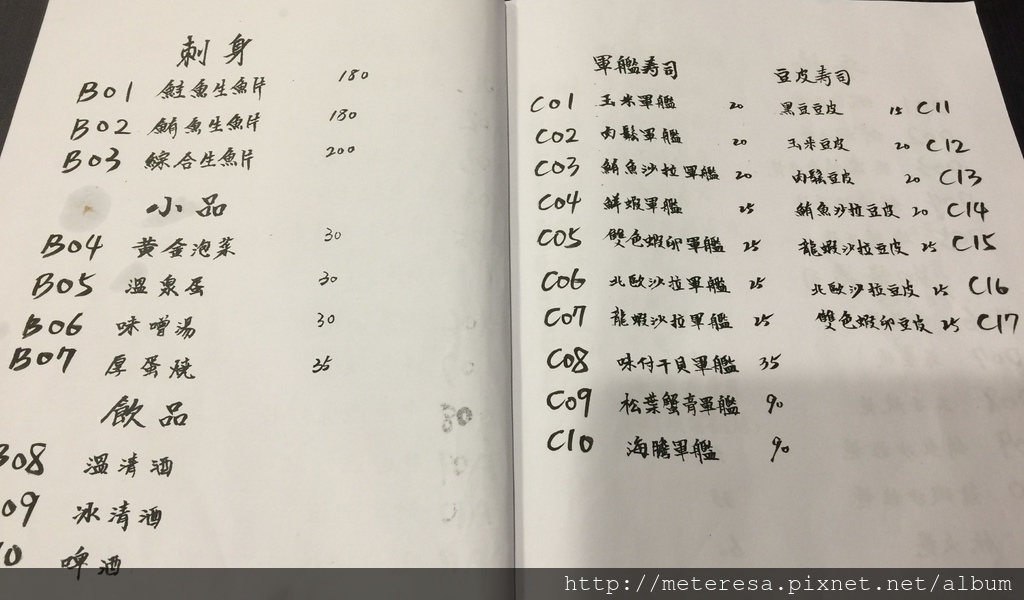 刺身
B01 鮭魚生魚片 180
B02 鮪魚生魚片 180
B03 綜合生魚片 200
小品
B04 黃金泡菜 30
B05 溫泉蛋 30
B06 味噌湯 30
B07 厚蛋燒 35
飲品
B08 溫清酒
09 冰清酒
10 啤酒
軍艦寿司 豆皮寿司
C01 玉米軍艦 20 黑豆豆皮 15 C11
C02 肉鬆軍艦 20 玉米豆皮 20 C12
C03 鮪魚沙拉軍艦 20 肉鬆豆皮 20 C13
C04 鮮蝦軍艦 25 鮪魚沙拉豆皮 20 C14
C05 雙色蝦卵軍艦 25 龍蝦沙拉豆皮 25 C15
C06 北歐沙拉軍艦 25 北歐沙拉豆皮 25 C16
C07 龍蝦沙拉軍艦 25 雙色蝦卵豆皮 25 C17
C08 味付干貝軍艦 35
C09 松葉蟹膏軍艦 90
C10 海膽軍艦 90
http://meteresa.pixnet.net/album